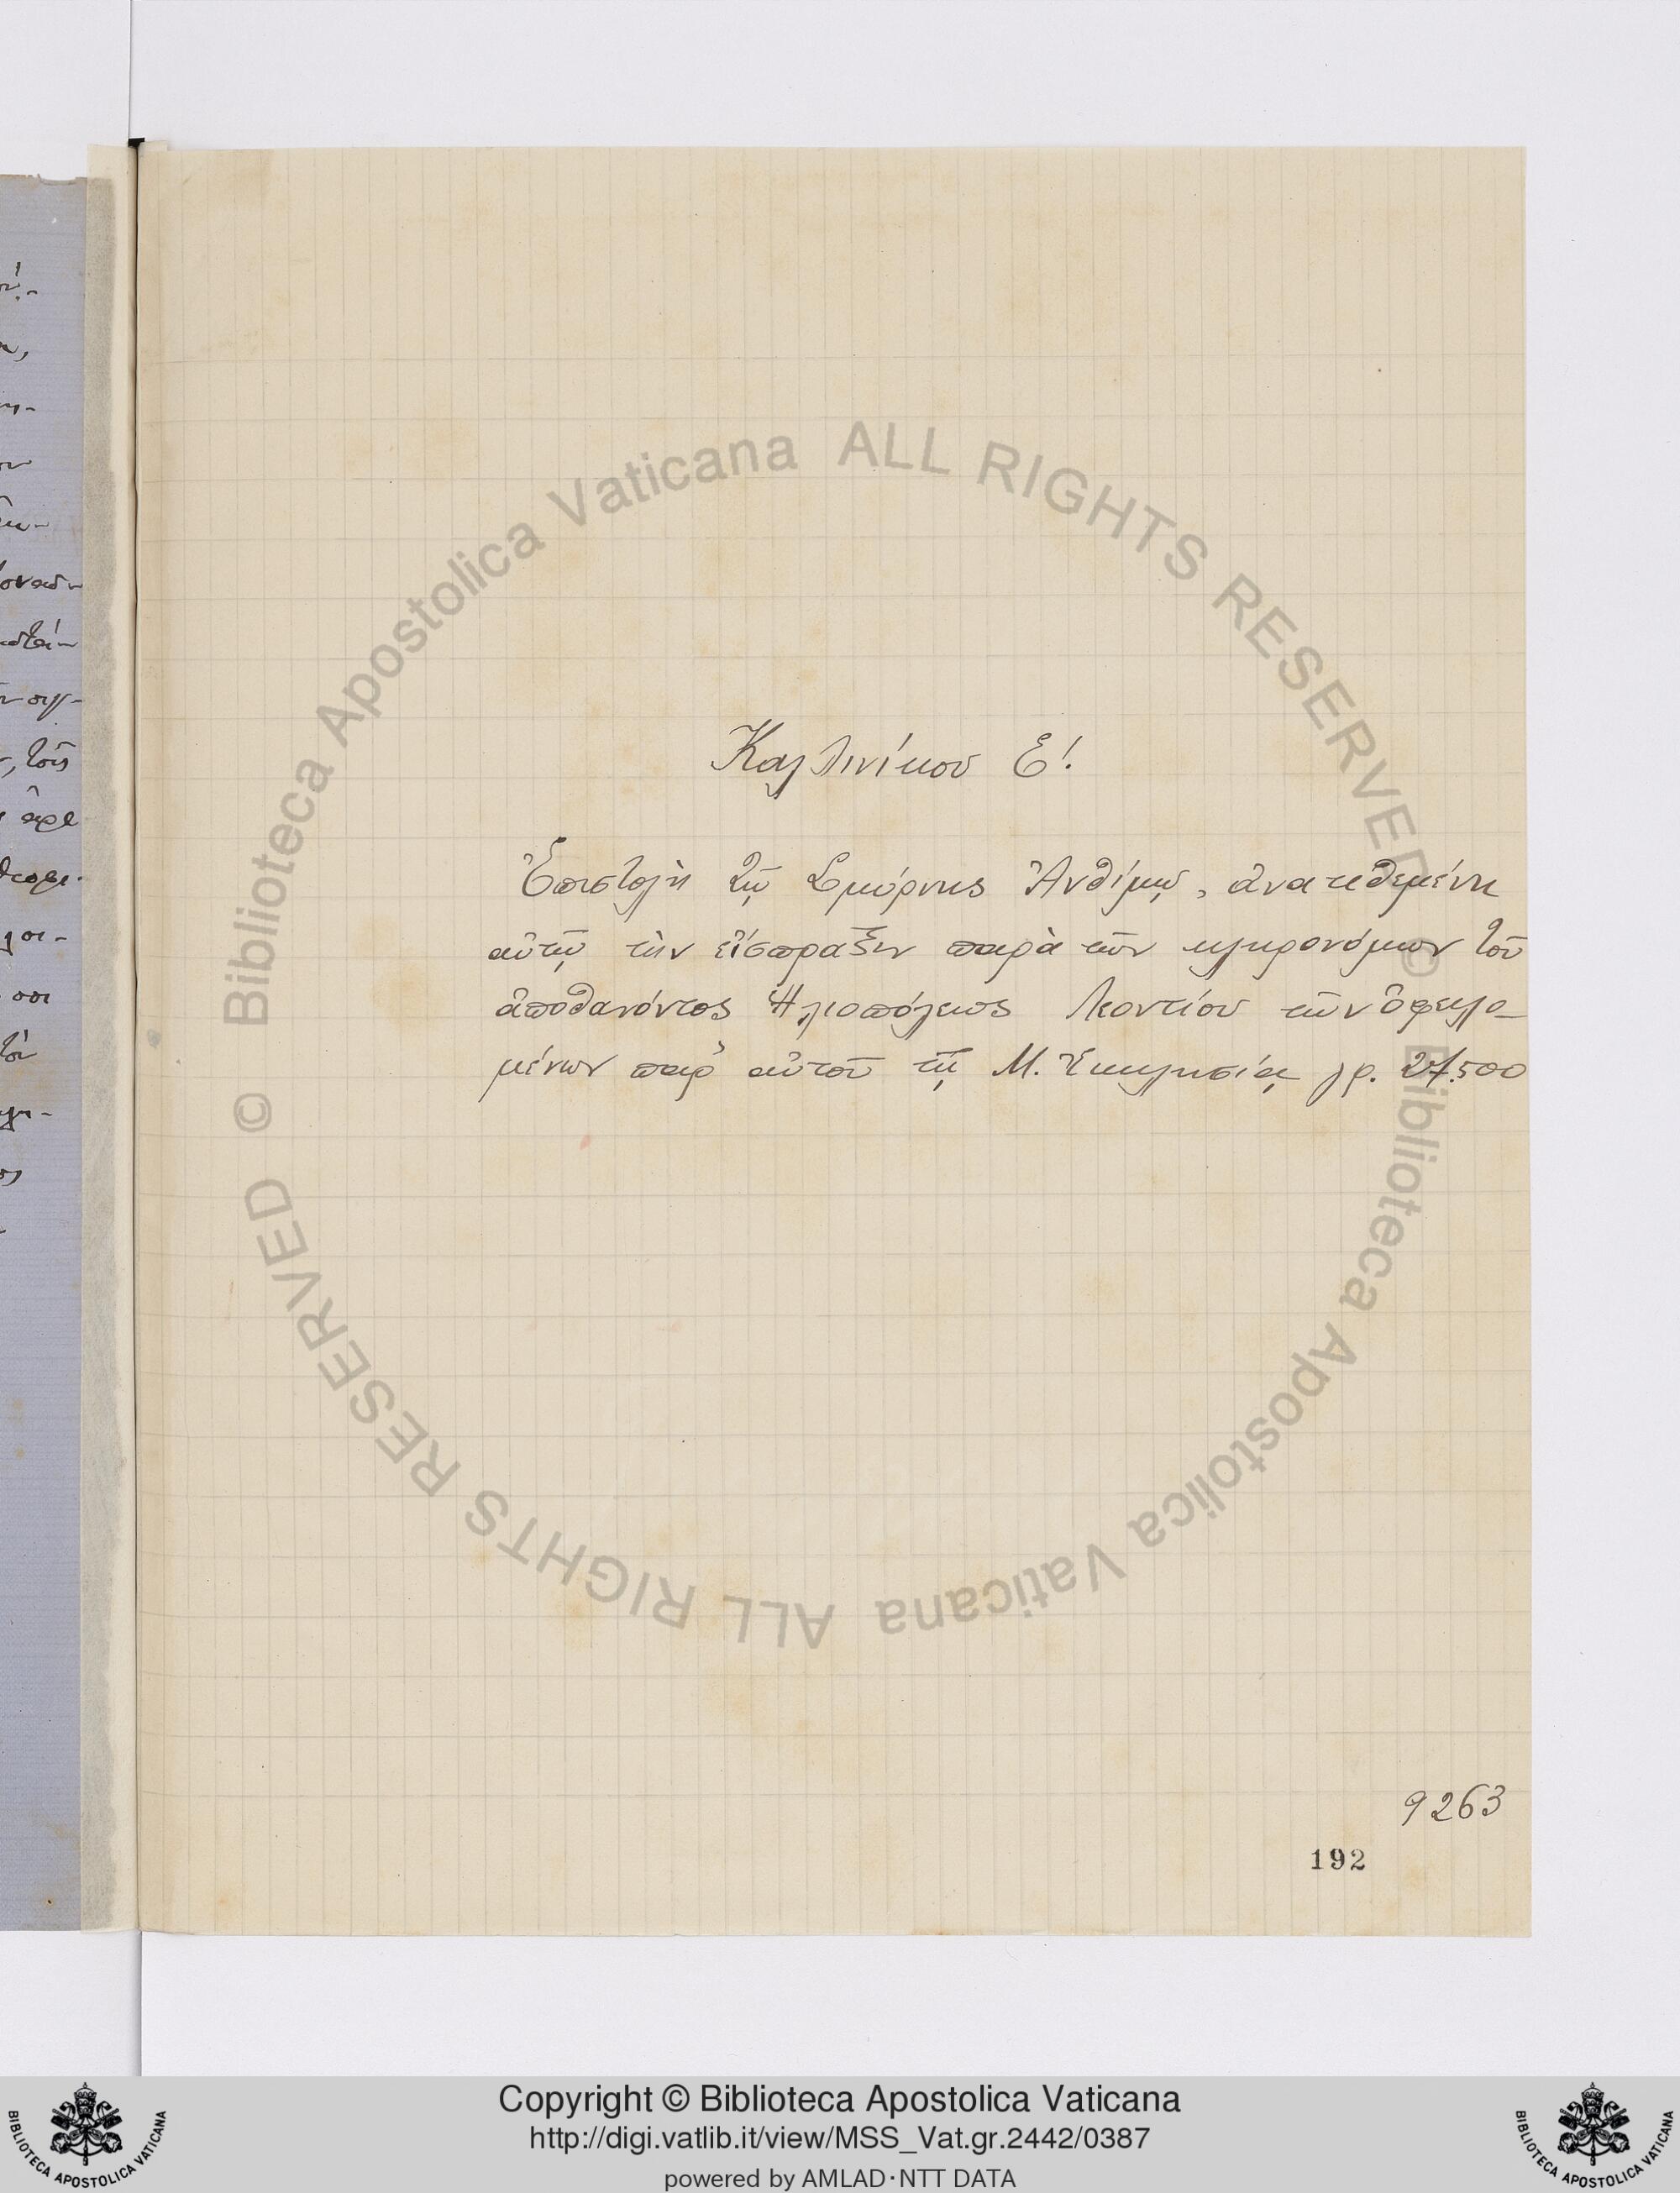 Καλλινίκου Ε΄.
Ἐπιστολὴ τῷ Σμύρνης Ἀνθίμῳ, ἀνατιθεμένη
αὐτῷ τὴν εἴσπραξιν παρὰ τῶν κληρονόμων τοῦ
ἀποθανόντος Ἡλιοπόλεως Λεοντίου τῶν ὀφειλο-
μένων παρ' αὐτοῦ τῇ Μ. Ἐκκλησίᾳ γρ. 27.500
9263
192
© Biblioteca Apostolica Vaticana ALL RIGHTS RESERVED
© Biblioteca Apostolica Vaticana ALL RIGHTS RESERVED
Copyright © Biblioteca Apostolica Vaticana
http://digi.vatlib.it/view/MSS_Vat.gr.2442/0387
powered by AMLAD·NTT DATA
BIBLIOTECA APOSTOLICA VATICANA
BIBLIOTECA APOSTOLICA VATICANA